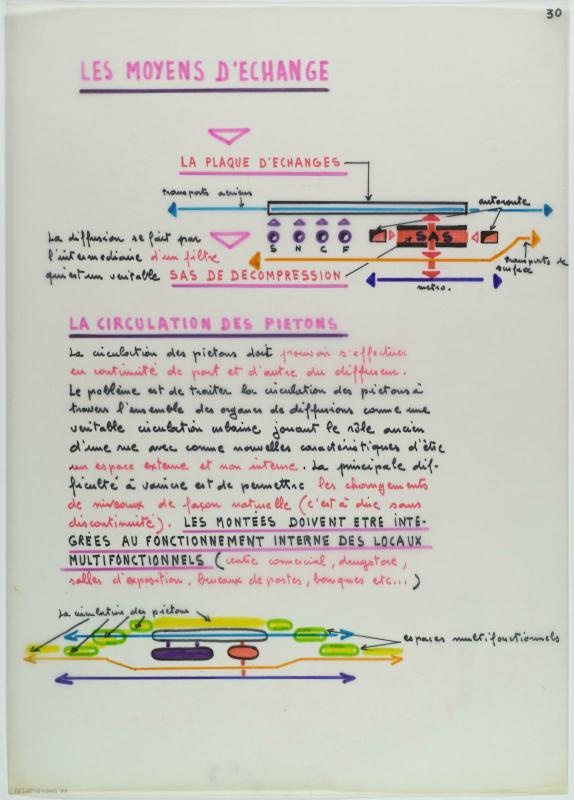 30
LES MOYENS D'ECHANGE
LA PLAQUE D'ECHANGES
transports aeriens
autoroute
La diffusion se fait par
l'intermediaire d'un filtre
qui est un veritable SAS DE DECOMPRESSION
S N C F
SAS
transports de
surface
metro.
LA CIRCULATION DES PIETONS
La circulation des pietons doit pouvoir s'effectuer
en continuité de part et d'autre du diffuseur.
Le problème est de traiter la circulation des pietons à
travers l'ensemble des organes de diffusions comme une
veritable circulation urbaine jouant le rôle ancien
d'une rue avec comme nouvelles caractéristiques d'être
un espace externe et non interne. La principale dif-
ficulté à vaincre est de permettre les changements
de niveaux de façon naturelle (c'est à dire sans
discontinuité). LES MONTÉES DOIVENT ETRE INTE-
GRÉES AU FONCTIONNEMENT INTERNE DES LOCAUX
MULTIFONCTIONNELS (centre comercial, drugstore,
salles d'exposition, bureaux de postes, banques etc...)
La circulation des pietons
espaces multifonctionnels